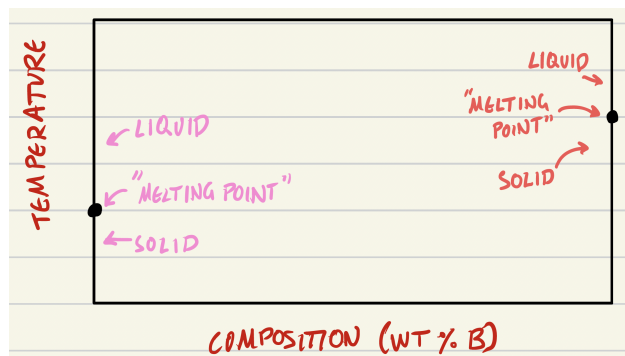 TEMPERATURE
LIQUID
"MELTING POINT"
SOLID
LIQUID
"MELTING
POINT"
SOLID
COMPOSITION (WT % B)